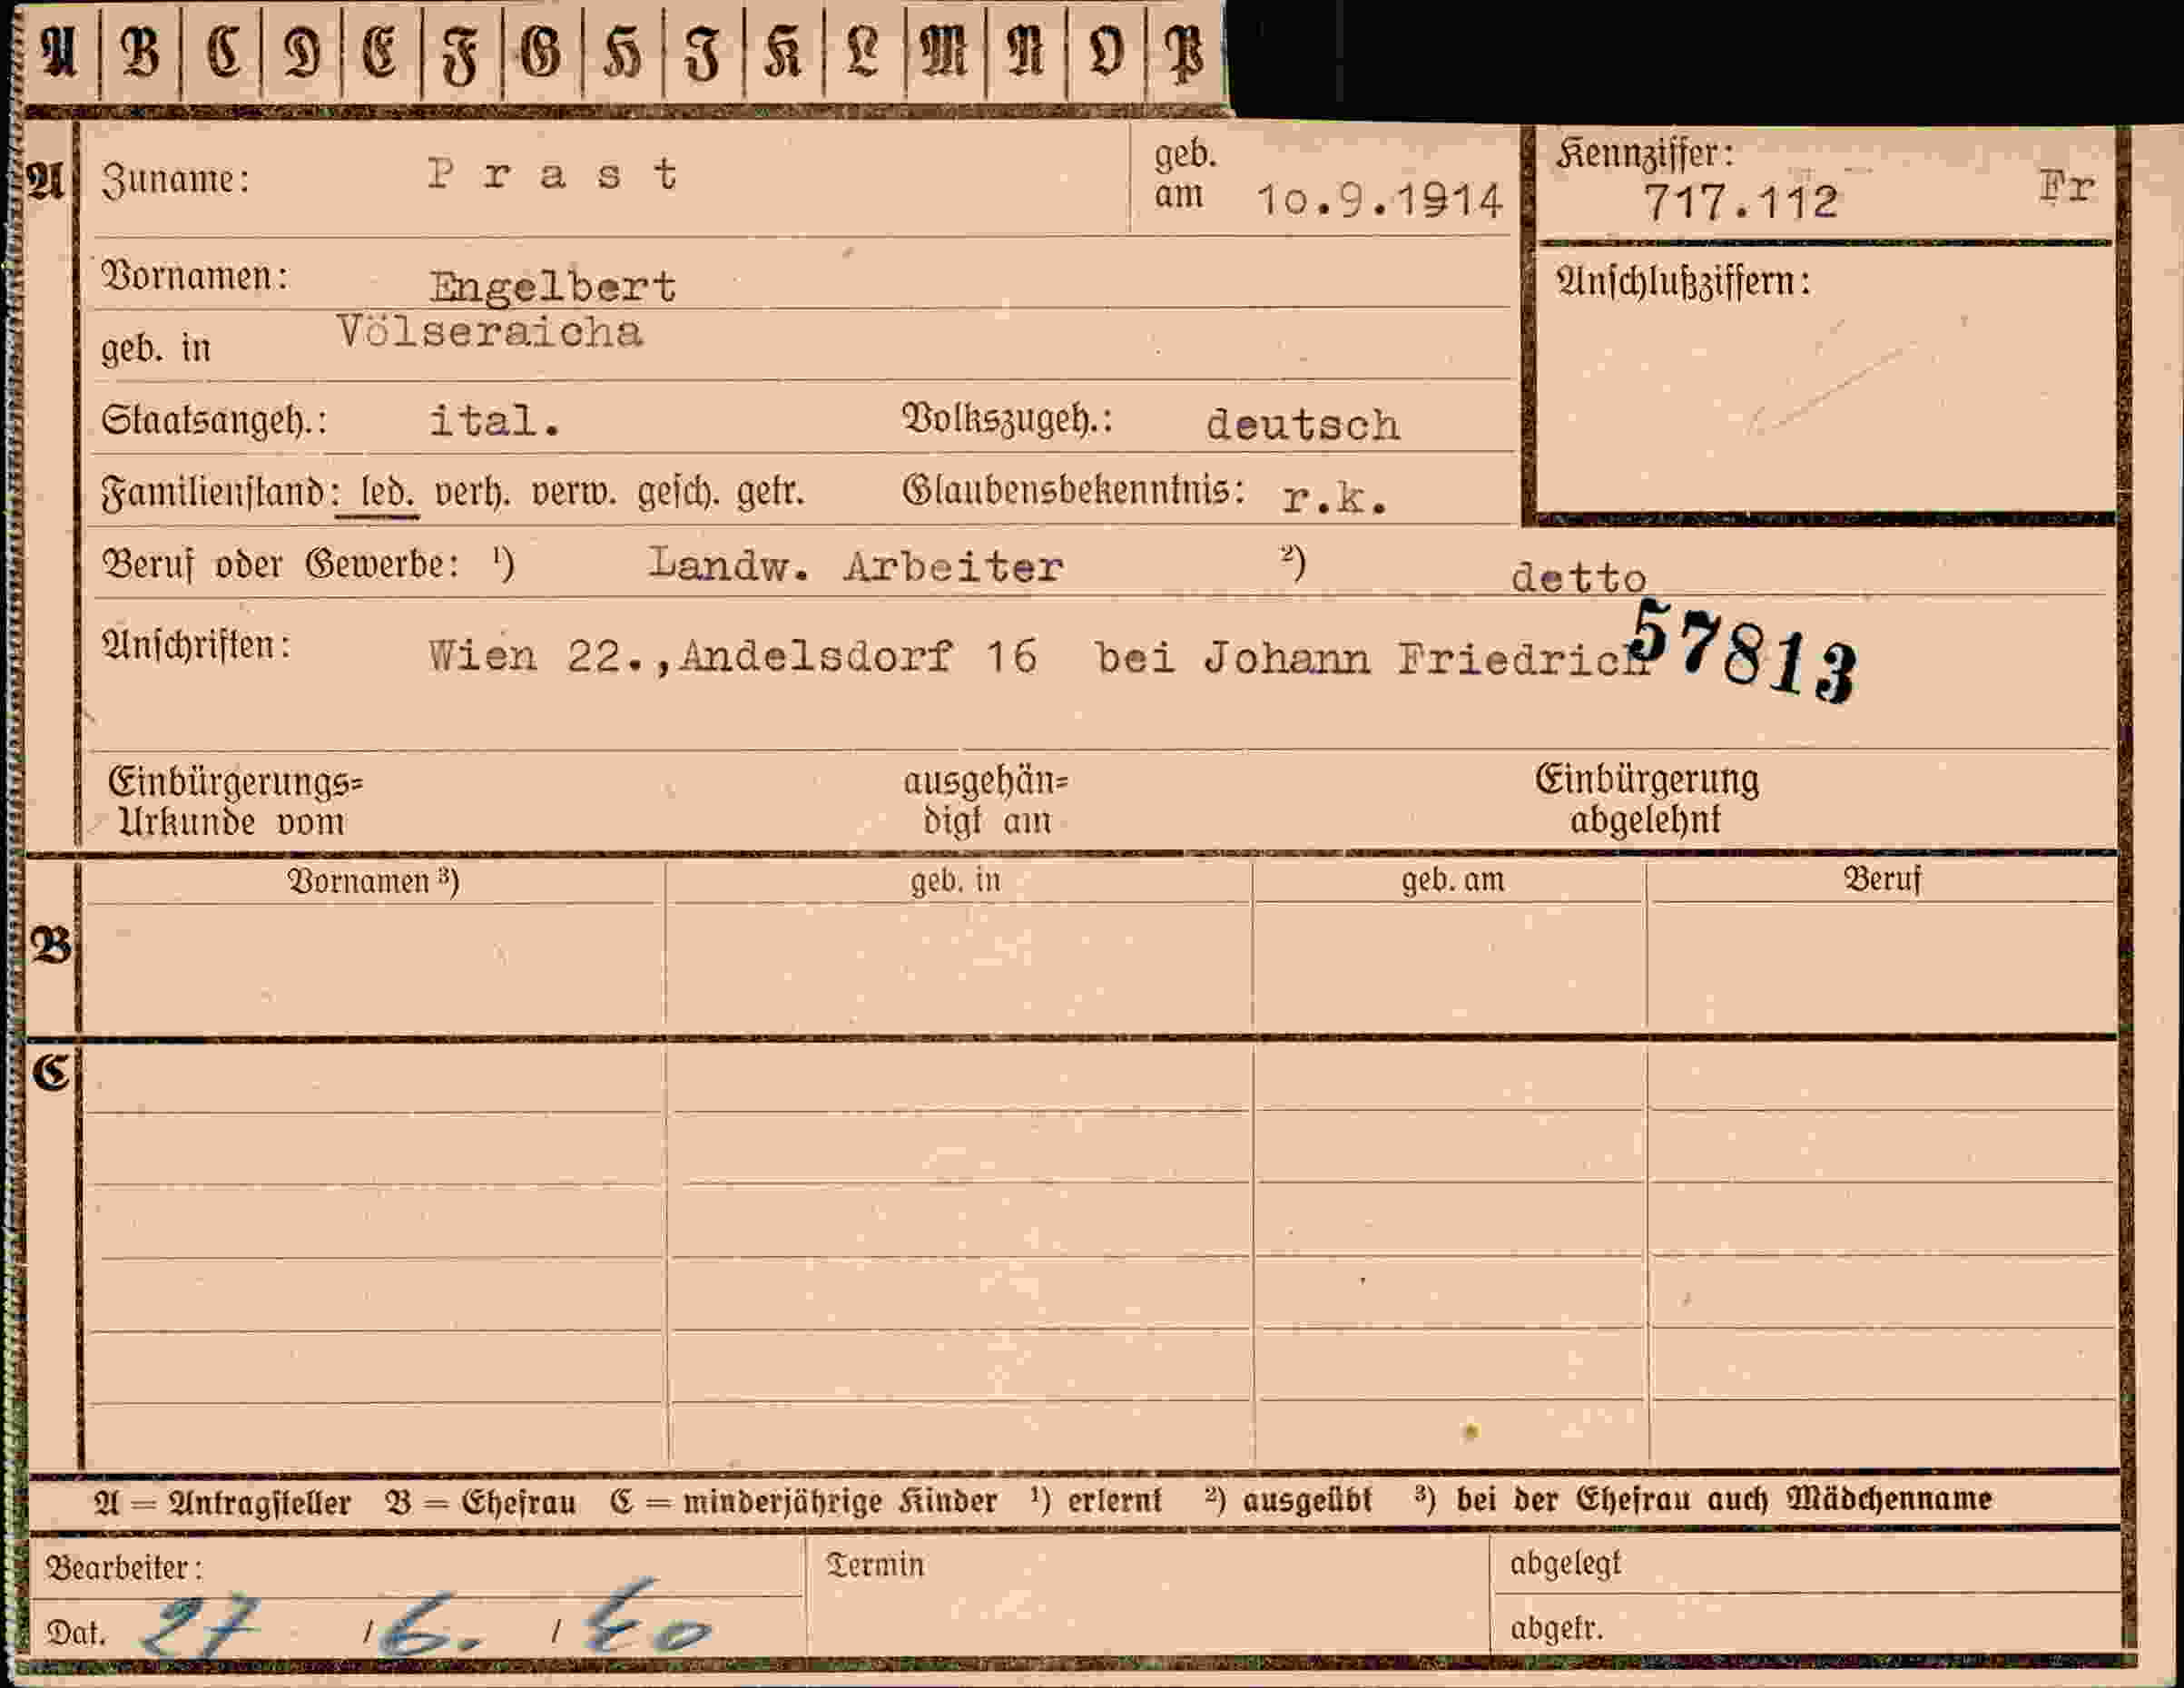 A B C D E F G H I K L M N O P
A Zuname: Prast geb. am 10.9.1914 Kennziffer: 717.112 Fr
Vornamen: Engelbert Anschlußziffern:
geb. in Völseraicha
Staatsangeh.: ital. Volkszugeh.: deutsch
Familienstand: led. verh. verw. gesch. getr. Glaubensbekenntnis: r.k.
Beruf oder Gewerbe: ¹) Landw. Arbeiter ²) detto
Anschriften: Wien 22.,Andelsdorf 16 bei Johann Friedrich 57813
Einbürgerungs= ausgehän= Einbürgerung
Urkunde vom digt am abgelehnt
Vornamen ³) geb. in geb. am Beruf
B
C
A = Antragsteller B = Ehefrau C = minderjährige Kinder ¹) erlernt ²) ausgeübt ³) bei der Ehefrau auch Mädchenname
Bearbeiter: Termin abgelegt
Dat. 27 / 6. / 40 abgetr.